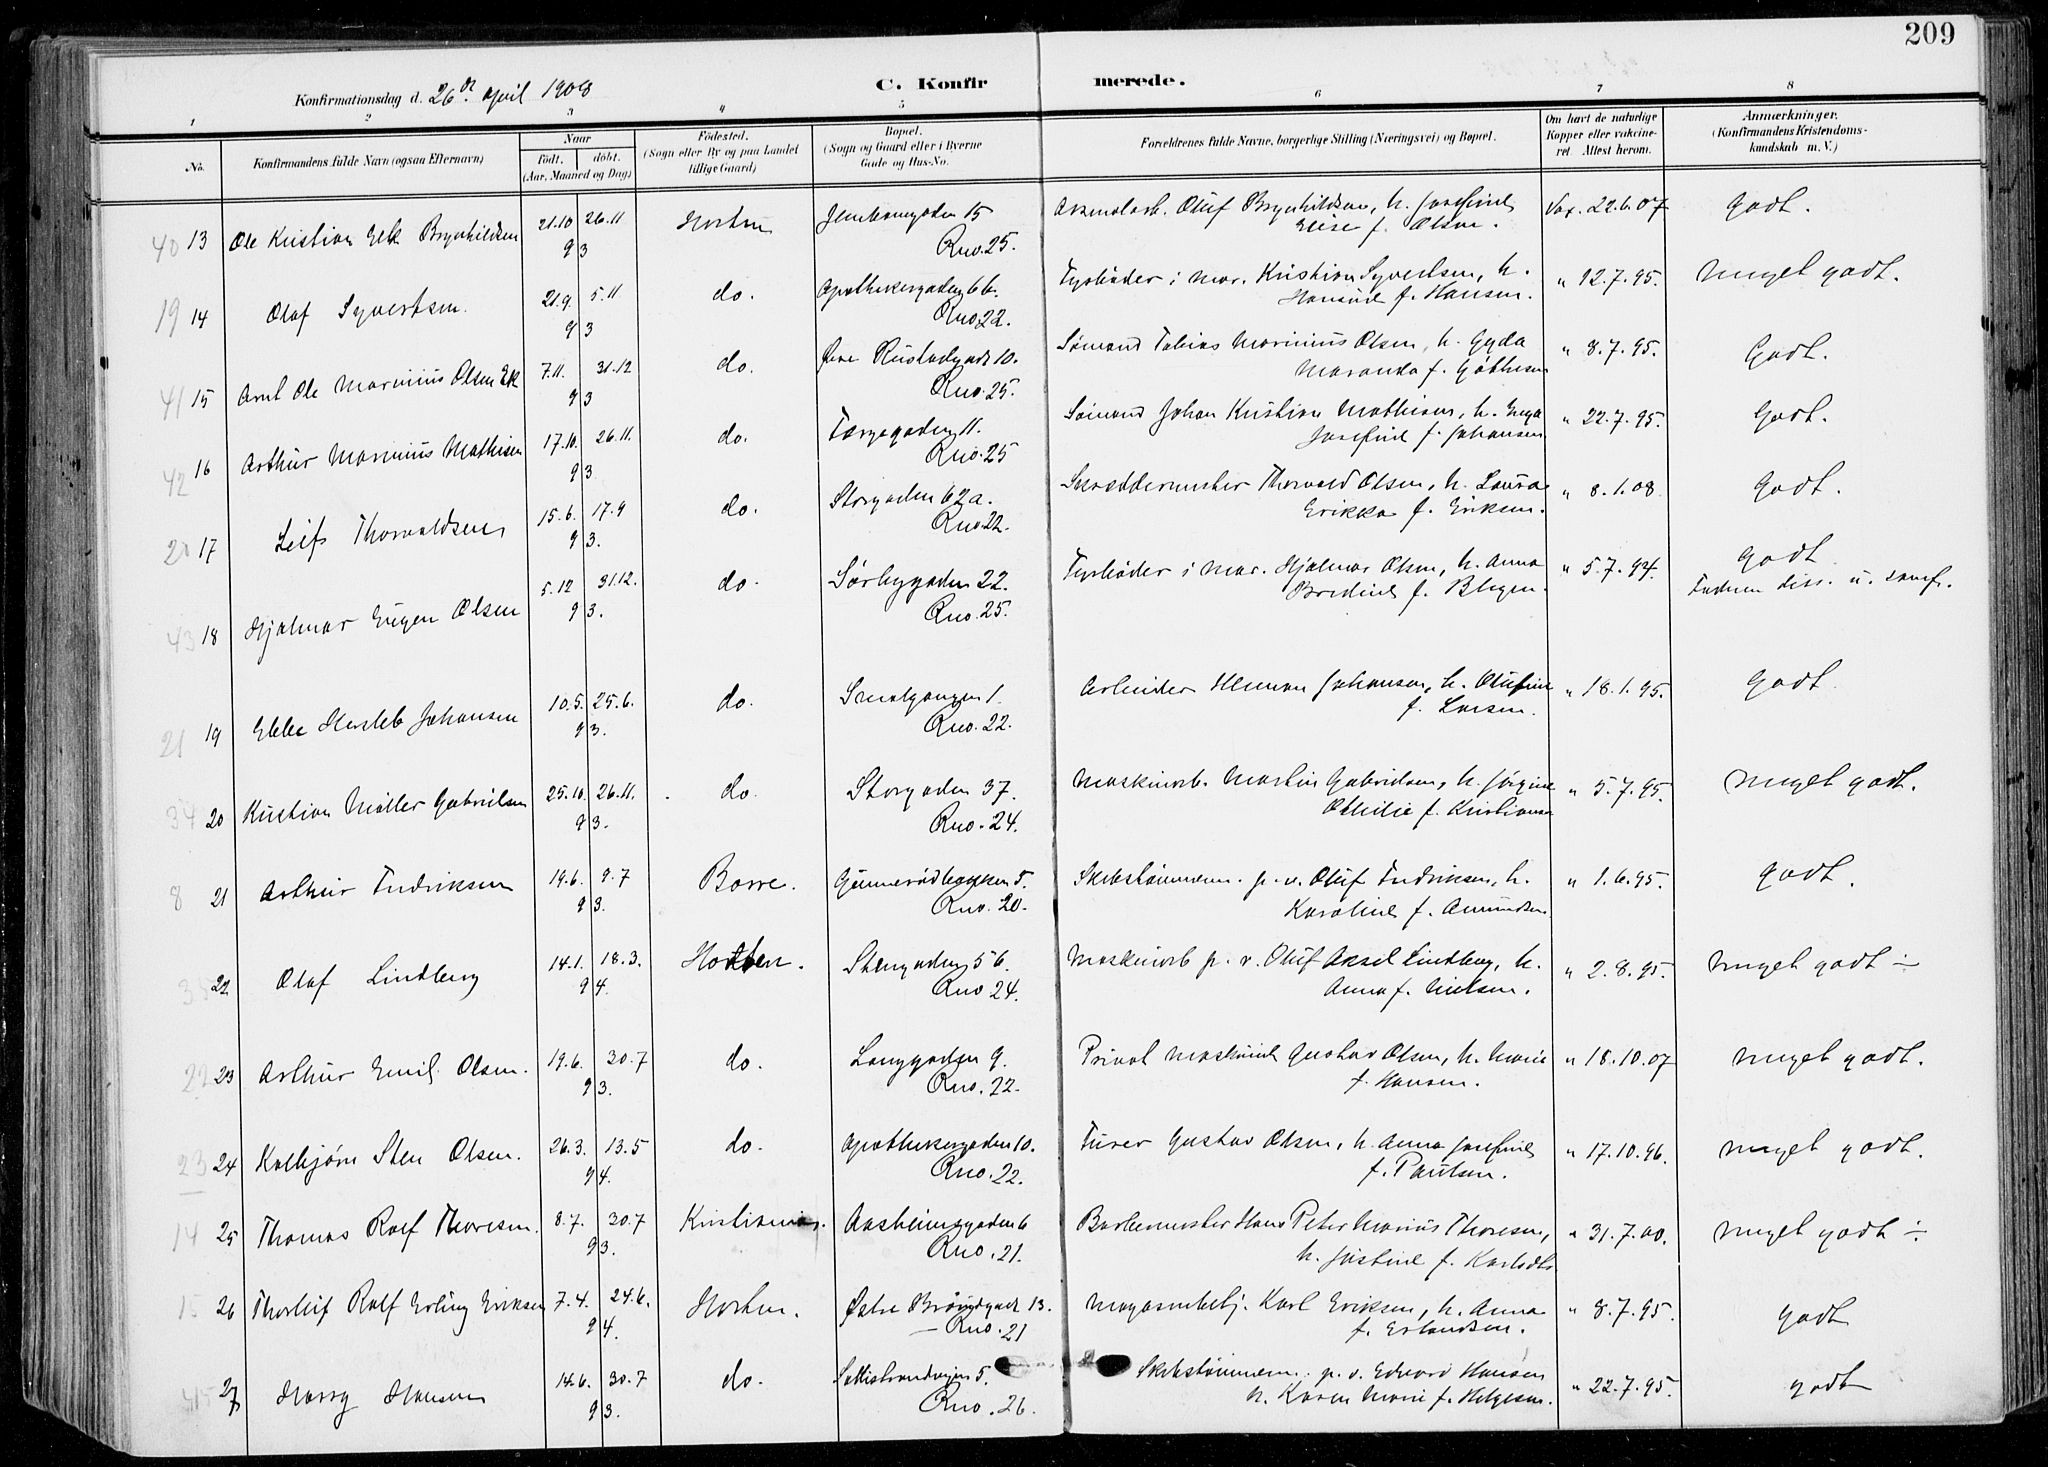 209
C. Konfirmerede.
Konfirmationsdag d. 26de april 1908
1 2 3 4 5 6 7 8
No. Konfirmandens fulde Navn (ogsaa Efternavn) Naar Födt. döbt. (Aar, Maaned og Dag) Födested. (Sogn eller By og paa Landet tillige Gaard) Bopæl. (Sogn og Gaard eller i Byerne Gade og Hus-No. Forældrenes fulde Navne, borgerlige Stilling (Næringsvei) og Bopæl. Om havt de naturlige Kopper eller vakcineret. Attest herom. Anmærkninger. (Konfirmandens Kristendomskundskab m. V.)
40 13 Ole Kristian Brynhildsen 21.10 26.11 Horten Jernbanegaden 15 Arsenalarb. Oluf Brynhildsen, h. Josefine Vax. 22.6.07 Godt.
93 Rno. 25. Elise f. Olsen.
19 14 Olaf Syvertsen. 21.9. 5.11 do. Apothekergaden 6b. Fyrböder i mar. Kristian Syvertsen, h. " 12.7.95. Meget godt.
93 Rno 22. Hansine f. Hansen.
41 15 Arnt Ole Marinius Olsen Ek 7.11. 31.12 do. Øvre Rustadgade 10. Sömand Tobias Marinius Olsen, h. Gyda " 8.7.95. Godt.
93 Rno. 25. Maranda f.
42 16 Arthur Marinius Mathisen 17.10. 26.11. do. Torvegaden 11. Sömand Johan Kristian Mathisen, h. " 22.7.95. Godt.
93 Rno. 25 Josefine f. Johansen
20 17 Leif Thorvaldsen 15.6. 17.9 do. Storgaden 62a. Skræddermester Thorvald Olsen, h. Laura " 8.1.08 Godt.
93. Rno. 22. Erikka f. Eriksen.
43 18 Hjalmar Eugen Olsen 5.12 31.12. do. Sörbygaden 22. Fyrböder i mar. Hjalmar Olsen, h. Anna " 5.7.94. Godt
93. Rno. 25. Bredine f. Faderen diss. u. samf.
21 19 Ebbe Hersleb Johansen 10.5. 25.6. do. Smalgangen 1. Arbeider Herman Johansen, h. Olufine " 18.1.95. Godt
93. Rno. 22. f. Larsen.
34 20 Kristian Möller Gabrielsen 25.10. 26.11. do. Storgaden 37. Maskinarb. Martin Gabrielsen, h. Jörgine " 5.7.95. Meget godt.
93. Rno. 24. Othilie f. Kristiansen
8 21 Arthur Fredriksen 19.6. 9.7 Borre. Gunnerödbakken 5. Skibstömmerm. p. v. Oluf Fredriksen, h. " 1.6.95. Godt.
93. Rno. 20. Karoline f. Amundsen
35 22 Olaf Lindberg 14.1. 18.3. Horten. Stengaden 56. Maskinarb p. v. Oluf Aksel Lindberg, h. " 2.8.95. Meget godt ÷
94. Rno 24. Anna f. Nielsen.
22 23 Arthur Emil Olsen. 19.6. 30.7 do. Langgaden 9. Privat maskinist Gustav Olsen, h. Marie " 18.10.07 Meget godt.
93. Rno. 22. f. Hansen.
23 24 Kolbjörn Sten Olsen. 26.3. 13.5 do. Apothekergaden 10. Turer Gustav Olsen, h. Anna Josefine " 17.10.96. Meget godt.
94. Rno. 22. f. Paulsen.
14 25 Thomas Rolf Thoresen. 8.7. 30.7 Kristiania. Aasheimsgaden 6 Barbermester Hans Peter Marius Thoresen, " 31.7.00. Meget godt ÷
93. Rno. 21. h. Justine f.
15 26 Thorleif Rolf Erling Eriksen 7.4. 24.6. Horten. Østre Brårudgade 13. Magasinbetj. Karl Eriksen, h. Anna " 8.7.95. Godt
94. Rno. 21 f. Erlandsen.
27 Harry Hansen 14.6. 30.7 do. Saltestrandveien 5. Skibstömmerm. p. v. Edvard Hansen " 22.7.95. Godt
93. Rno. 26. h. Karen Marie f. Helgesen.